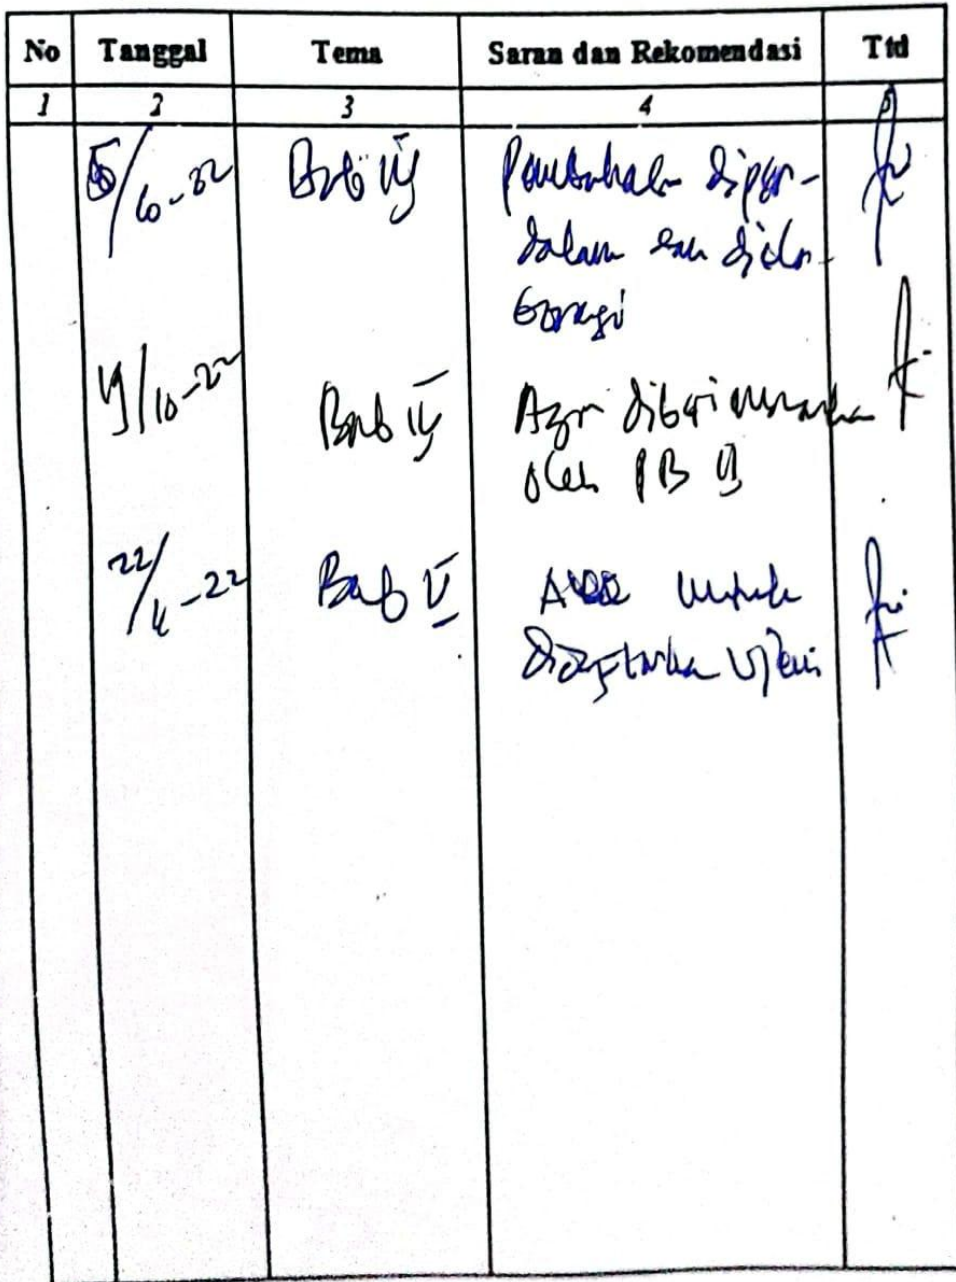 No Tanggal Tema Saran dan Rekomendasi Ttd
1 2 3 4 5
5/10-22 Bab IV Pembahasan diper-
dalam dan diela-
borasi
/10-22 Bab IV Agar
oleh PB II
22/ -22 Bab V ACC untuk
didaftarkan Ujian